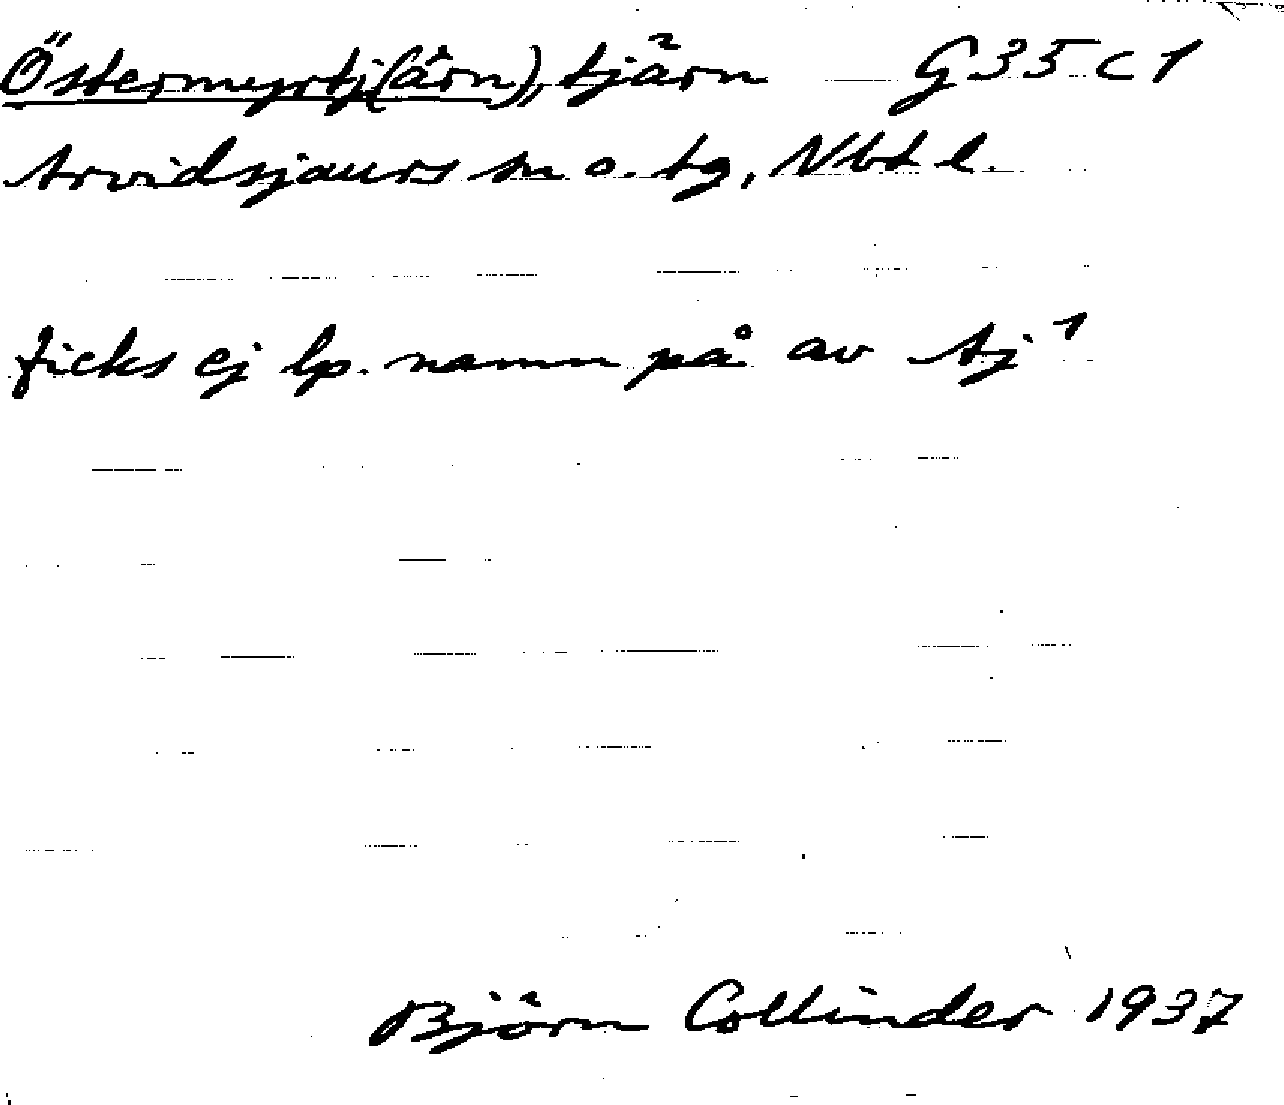 Östermyrtj(ärn), tjärn G35C1
Arvidsjaurs sn o. tg, Nbt l.
ficks ej lp. namn på av Aj 1
Björn Collinder 1937